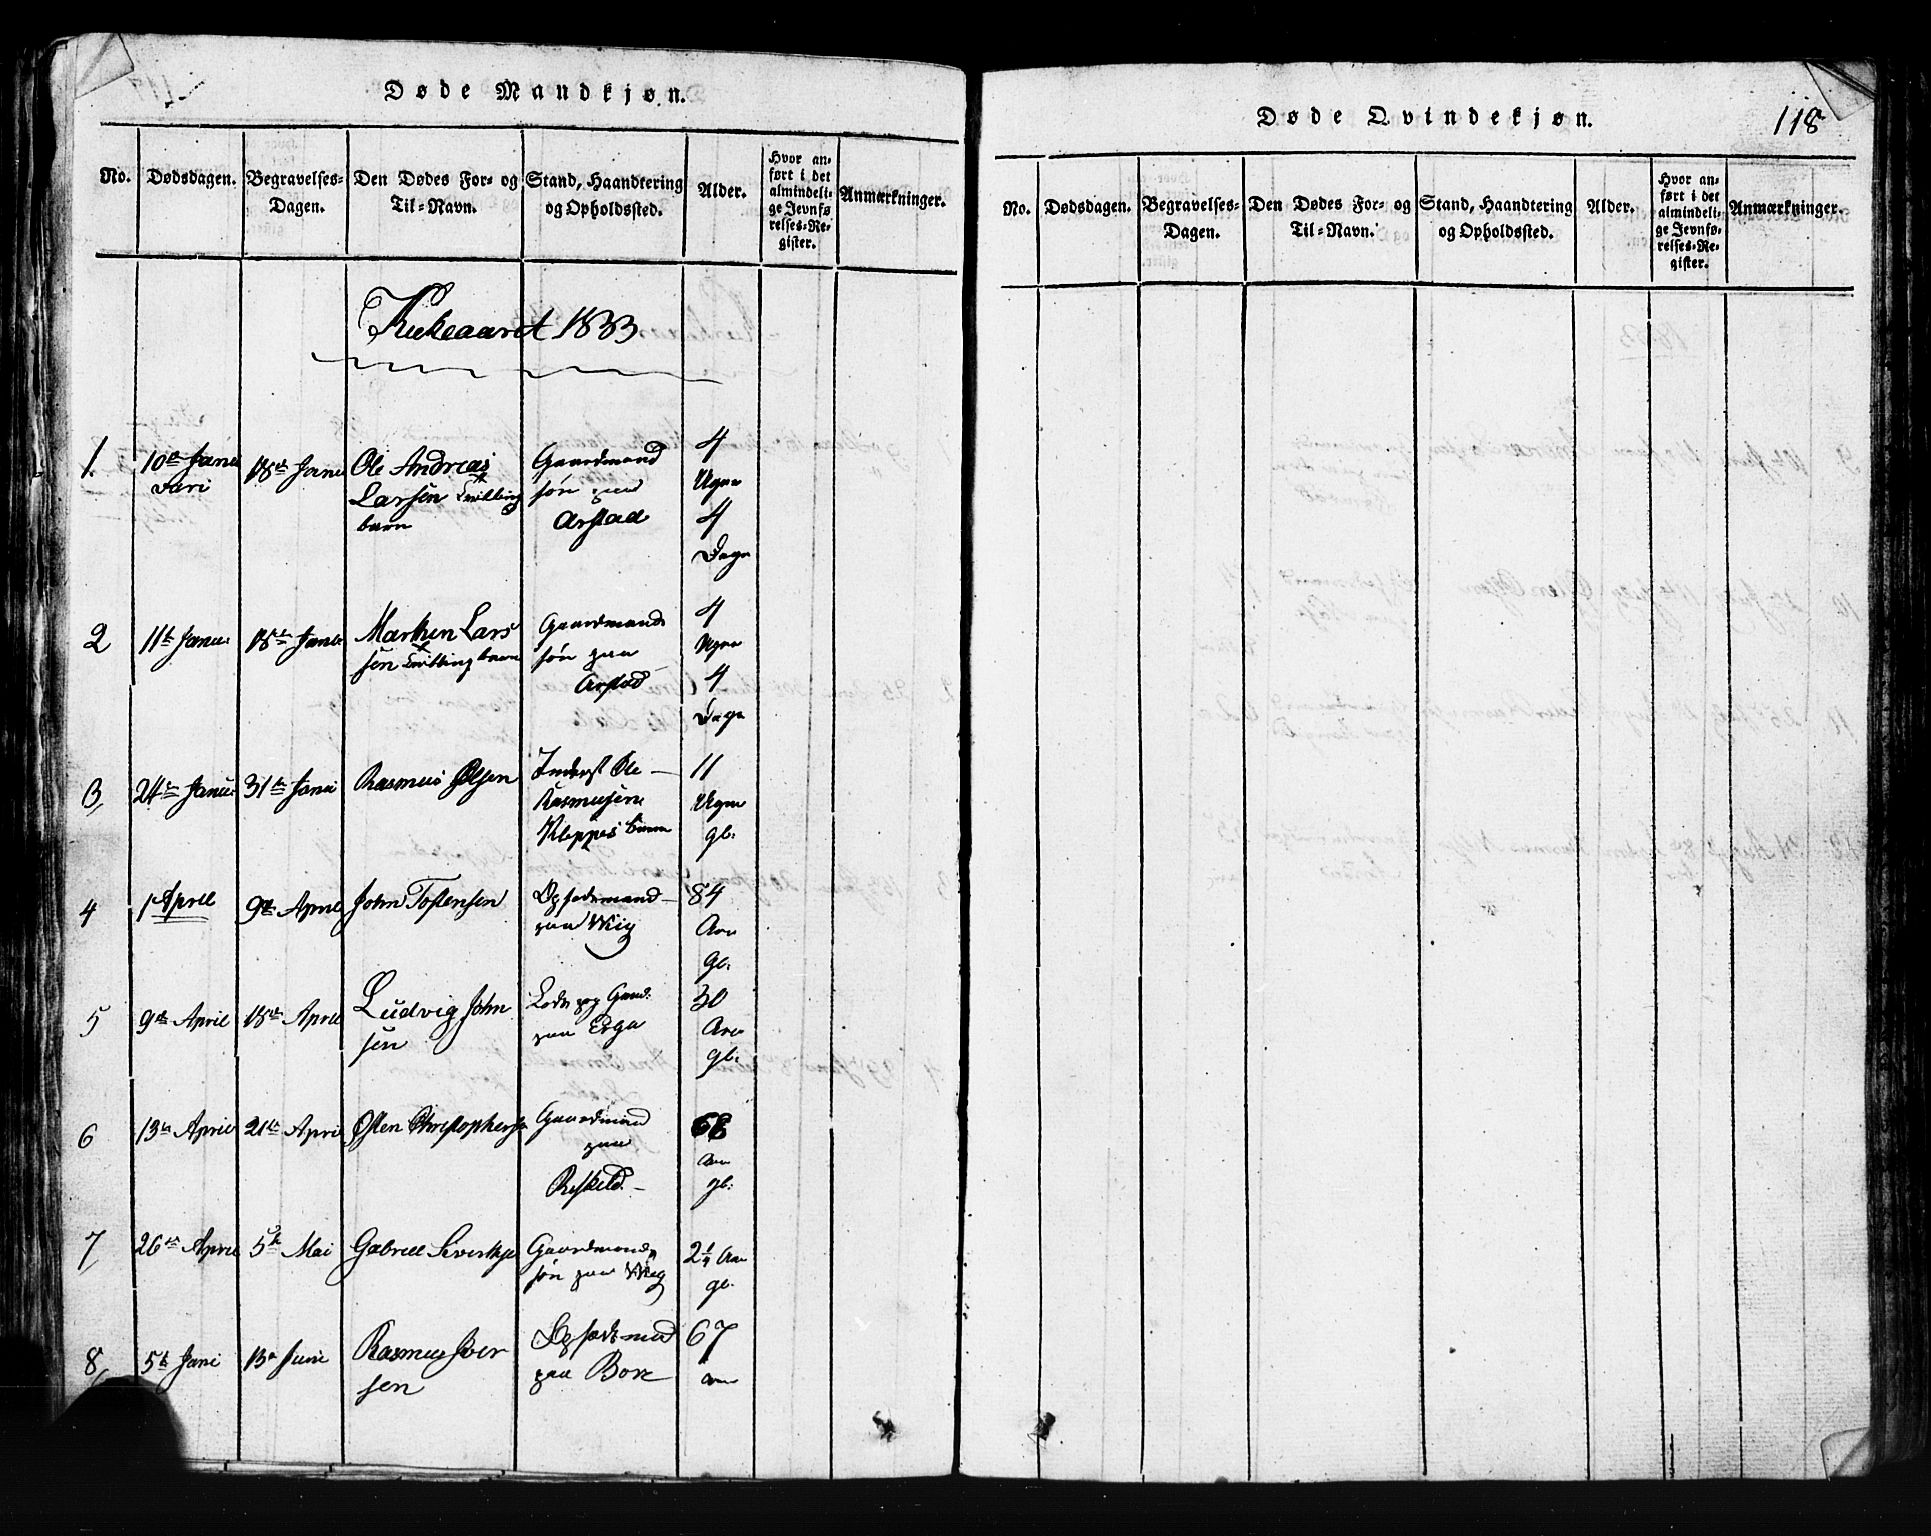 Døde Mandkjøn.
No.
Dødsdagen.
Begravelses-
Dagen.
Den Dødes For- og
Til-Navn.
Stand, Haandtering
og Opholdssted.
Alder.
Hvor an-
ført i det
almindeli-
ge Jevnfø
relses-Re-
gister.
Anmærkninger.
Kirkeaaret 1833
1.
10de Janu
vari
18de Janu
Ole Andreas
Larsen Tvilling
barn
Gaardmand
søn paa
Arstad
4
Uger
4
Dage
2
11te Janu
18de Janu
Marthen Lars
sen Tvillingbarn
Gaardmands
søn paa
Arstad
4
Uger
4
Dage
3,
24de Janu
31te Janu
Rasmus Olsen
Inderst Ole
Rasmusens
Kleppes
11
Uger
gl:
4
1 April
9de April
John Tostensen
Opsedsmand
paa Wiig
84
Aar
gl.
5
9de April
18de April
Ludvig John
sen
paa Erga
30
Aar
gl:
6
13de April
21de April
Østen Christophersen
Gaardmand
paa
Reskeld.
68
Aar
gl:
7
26de April
5te Mai
Gabriel
Gaardmands
søn paa Wiig
2¼ Aar
gl.
8,
5te Juni
13de Juni
Rasmus Iver
sen
Opsedsmand
paa Bore
67
Aar
Døde Qvindekjøn.
118
No.
Dødsdagen.
Begravelses-
Dagen.
Den Dødes For- og
Til-Navn.
Stand, Haandtering
og Opholdssted.
Alder.
Hvor an-
ført i det
almindeli-
ge Jevnfø-
relses-Re-
gister.
Anmærkninger.